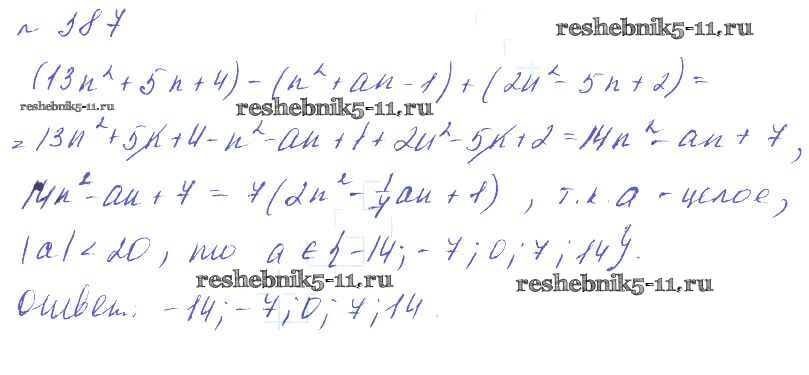 № 387 reshebnik5-11.ru
(13n² + 5n + 4) - (n² + an - 1) + (2n² - 5n + 2) =
reshebnik5-11.ru reshebnik5-11.ru
= 13n² + 5n + 4 - n² - an + 1 + 2n² - 5n + 2 = 14n² - an + 7,
14n² - an + 7 = 7(2n² - 1/7 an + 1), т.к. a - целое,
|a| < 20, то a ∈ {-14; -7; 0; 7; 14}.
reshebnik5-11.ru reshebnik5-11.ru
Ответ: -14; -7; 0; 7; 14.